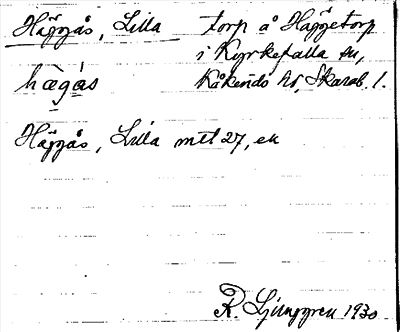 Häggås, Lilla torp å Häggetorp
i Kyrkefalla sn,
hæ̀gås Kåkinds hd, Skarab. l.
Häggås, Lilla mtl 27, ek
R. Ljunggren 1930